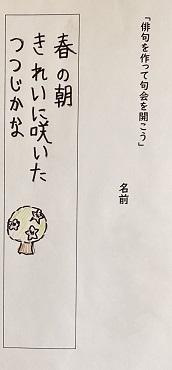 「俳句を作って句会を開こう」
名前
春の朝
きれいに咲いた
つつじかな